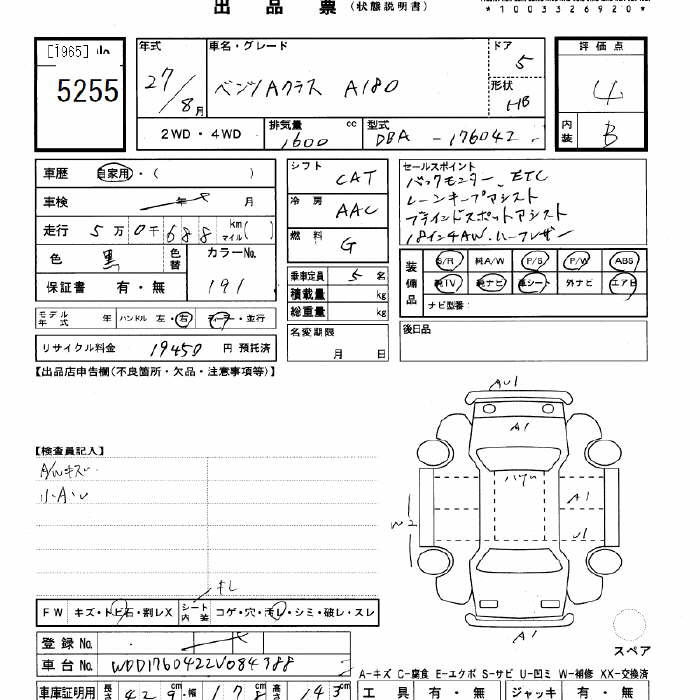 出品票(状態説明書)
*1003326920*
[1965]
5255
年式 27/8月
車名・グレード ベンツAクラス A180
ドア 5
形状 HB
評価点 4
内装 B
2WD・4WD
排気量 1600 cc
型式 DBA-176042
車歴 自家用・( )
車検 年 月
走行 5万0千688 km マイル( )
色 黒 色替 カラーNo. 191
保証書 有・無
モデル年式 年 ハンドル 左・右 ディーラー・並行
リサイクル料金 19450 円 預託済
シフト CAT
冷房 AAC
燃料 G
乗車定員 5 名
積載量 kg
総重量 kg
名変期限 月 日
セールスポイント
バックモニター、ETC
レーンキープアシスト
ブラインドスポットアシスト
18インチAW、ハーフレザー
装備品 S/R 純A/W P/S P/W ABS
純TV 純ナビ 革シート 外ナビ エアB
ナビ型番:
後日品
【出品店申告欄(不良箇所・欠品・注意事項等)】
【検査員記入】
A/Wキズ
小A・U
FW キズ・トビ石・割レX シート内装 コゲ・穴・汚レ・シミ・破レ・スレ
登録No.
車台No. WDD1760422V084388
AU1
A1
W2
A1
U1
A1
スペア
A-キズ C-腐食 E-エクボ S-サビ U-凹ミ W-補修 XX-交換済
車庫証明用 長さ 429 ・幅 178 高さ 143
工具 有・無 ジャッキ 有・無